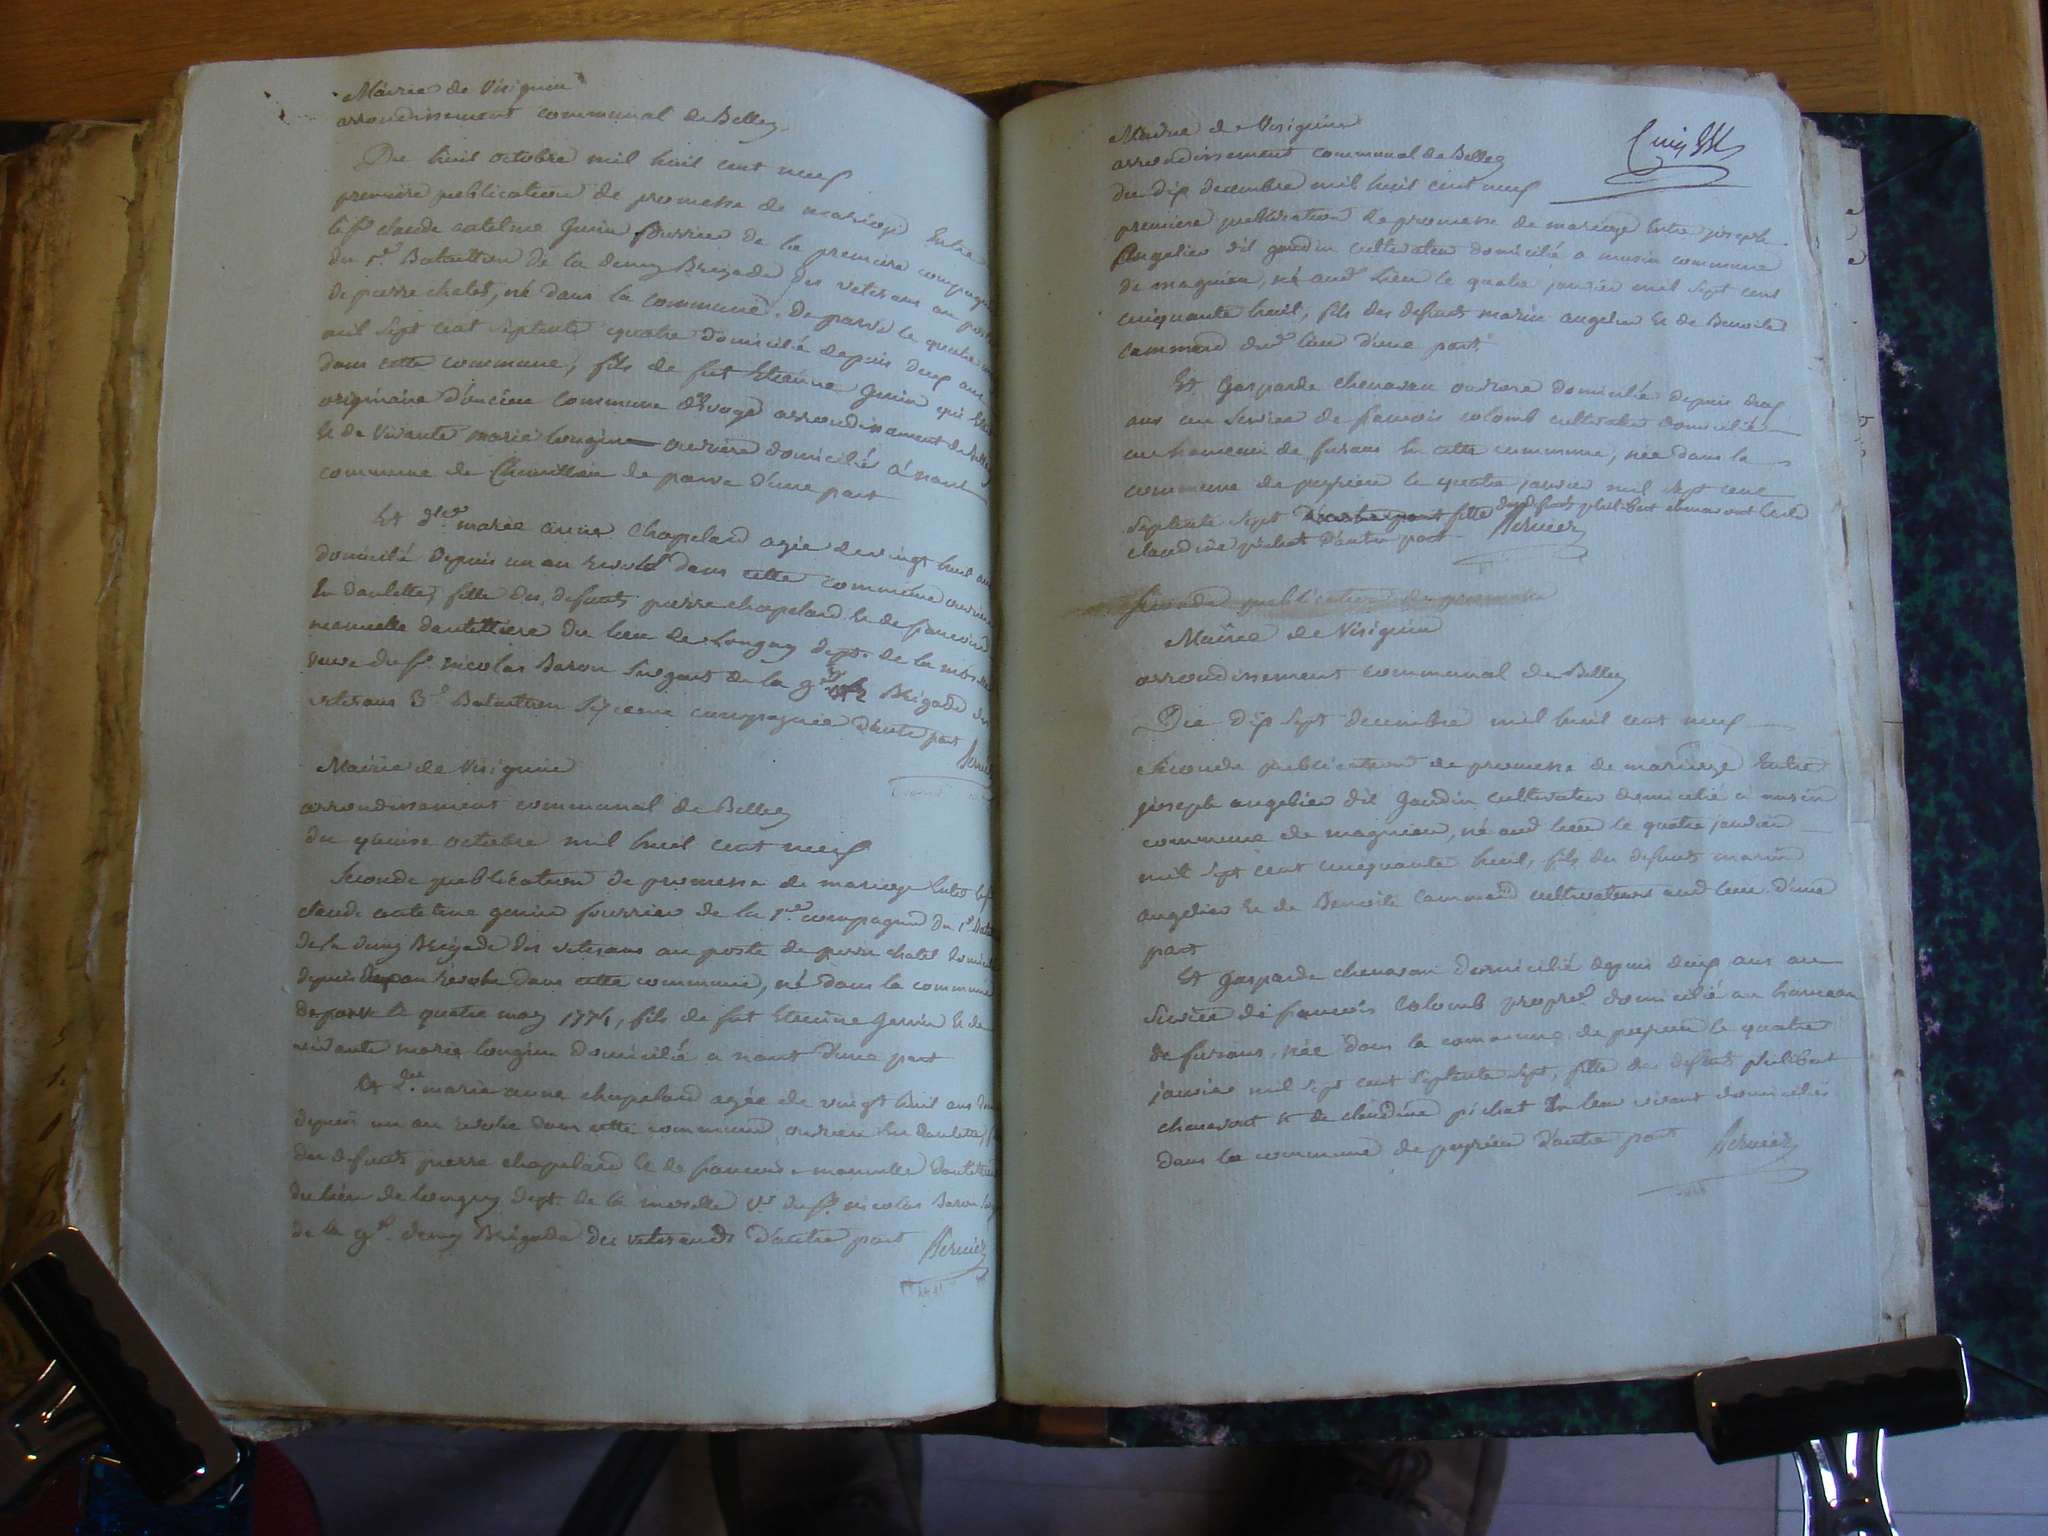 Mairie de Virignin
arrondissement communal de Belley
Du huit octobre mil huit cent neuf
premiere publication de promesse de mariage Entre
le sr claude antelme Genin fourrier de la premiere compagnie
du 1er Bataillon de la demy Brigade des veterans au poste
de pierre chatel, né dans la commune de parve le quatre
mil sept cent septente quatre domicilié depuis deux ans
dans cette commune, fils de fut Etienne Genin qui
originaire d'une commune arrondissement de Belley
Et de vivante marie longin ouvriere domicilié à nant
commune de de parve d'une part
Et dlle marie anne Chapeland agée de vingt huit ans
domicilié depuis un an revolu dans cette commune ouvriere
En dantelle, fille des defunts pierre chapeland Et de francoise
manuelle dantelliere du lieu de Longwy dept. de la moselle
veuve du sr. nicolas Baron sergent de la 9e Brigade des
veterans 3e Bataillon sixieme compagnie d'autre part
Bernier
Mairie de Virignin
arrondissement communal de Belley
du quinse octobre mil huit cent neuf
Seconde publication de promesse de mariage Entre le sr
claude antelme genin fourrier de la 1re compagnie du 1er
de la demy Brigade des veterans au poste de pierre chatel
depuis un an revolu dans cette commune, né dans la commune
de parve le quatre may 1774, fils de fut Etienne Genin Et de
vivante marie longin domicilié a nant d'une part
Et dlle marie anne chapeland agée de vingt huit ans
depuis un an revolu dans cette commune, ouvriere En dantelle,
des defunts pierre chapeland Et de francoise manuelle dantelliere
du lieu de longwy dept. de la moselle ve du sr. nicolas Baron
de la 9e demy Brigade des veterands d'autre part
Bernier
Mairie de Virignin
arrondissement communal de Belley
du dix decembre mil huit cent neuf
premiere publication de promesse de mariage Entre joseph
Angelier dit gaudin cultivateur domicilié a musin commune
de magnieu, né aud lieu le quatre janvier mil sept cent
cinquante huit, fils des defunts marin angelier Et de Benoite
Cammand dud lieu d'une part
Et Gasparde chenavon ouvriere domicilié depuis deux
ans au service de francois colomb cultivateur domicilié
au hameau de furans En cette commune, née dans la
commune de peyrieu le quatre janvier mil sept cent
septente sept d'autre part fille des defunts philibert chenavont Et de
claudine pichat d'autre part Bernier
seconde publication de promesse
Mairie de Virignin
arrondissement communal de Belley
Du dix sept decembre mil huit cent neuf
Seconde publication de promesse de mariage Entre
joseph angelier dit Gaudin cultivateur domicilié a musin
commune de magnieu, né aud lieu le quatre janvier
mil sept cent cinquante huit, fils des defunts marin
angelier Et de Benoite Cammand cultivateurs aud lieu d'une
part
Et Gasparde chenavon domicilié depuis deux ans au
service de francois Colomb propre. domicilié au hameau
de furans, née dans la commune de peyrieu le quatre
janvier mil sept cent septente sept, fille des defunts philibert
chenavont Et de claudine pichat En leur vivant domiciliés
dans la commune de peyrieu d'autre part Bernier